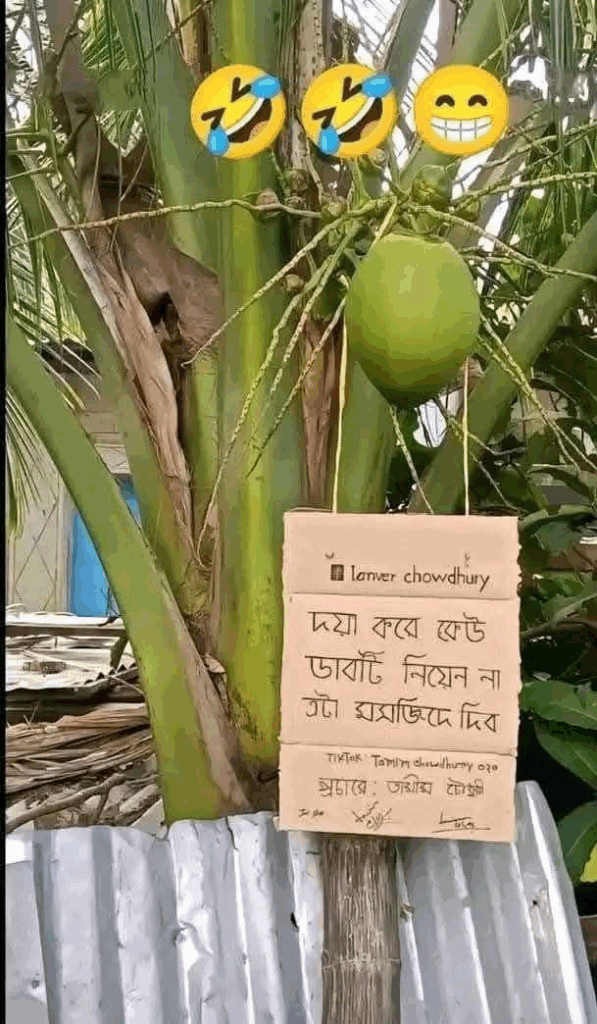 Tanver chowdhury
দয়া করে কেউ
ডাবটি নিয়েন না
এটা মসজিদে দিব
TikTok: Tamim chowdhury 020
প্রচারে: তামীম চৌধুরী